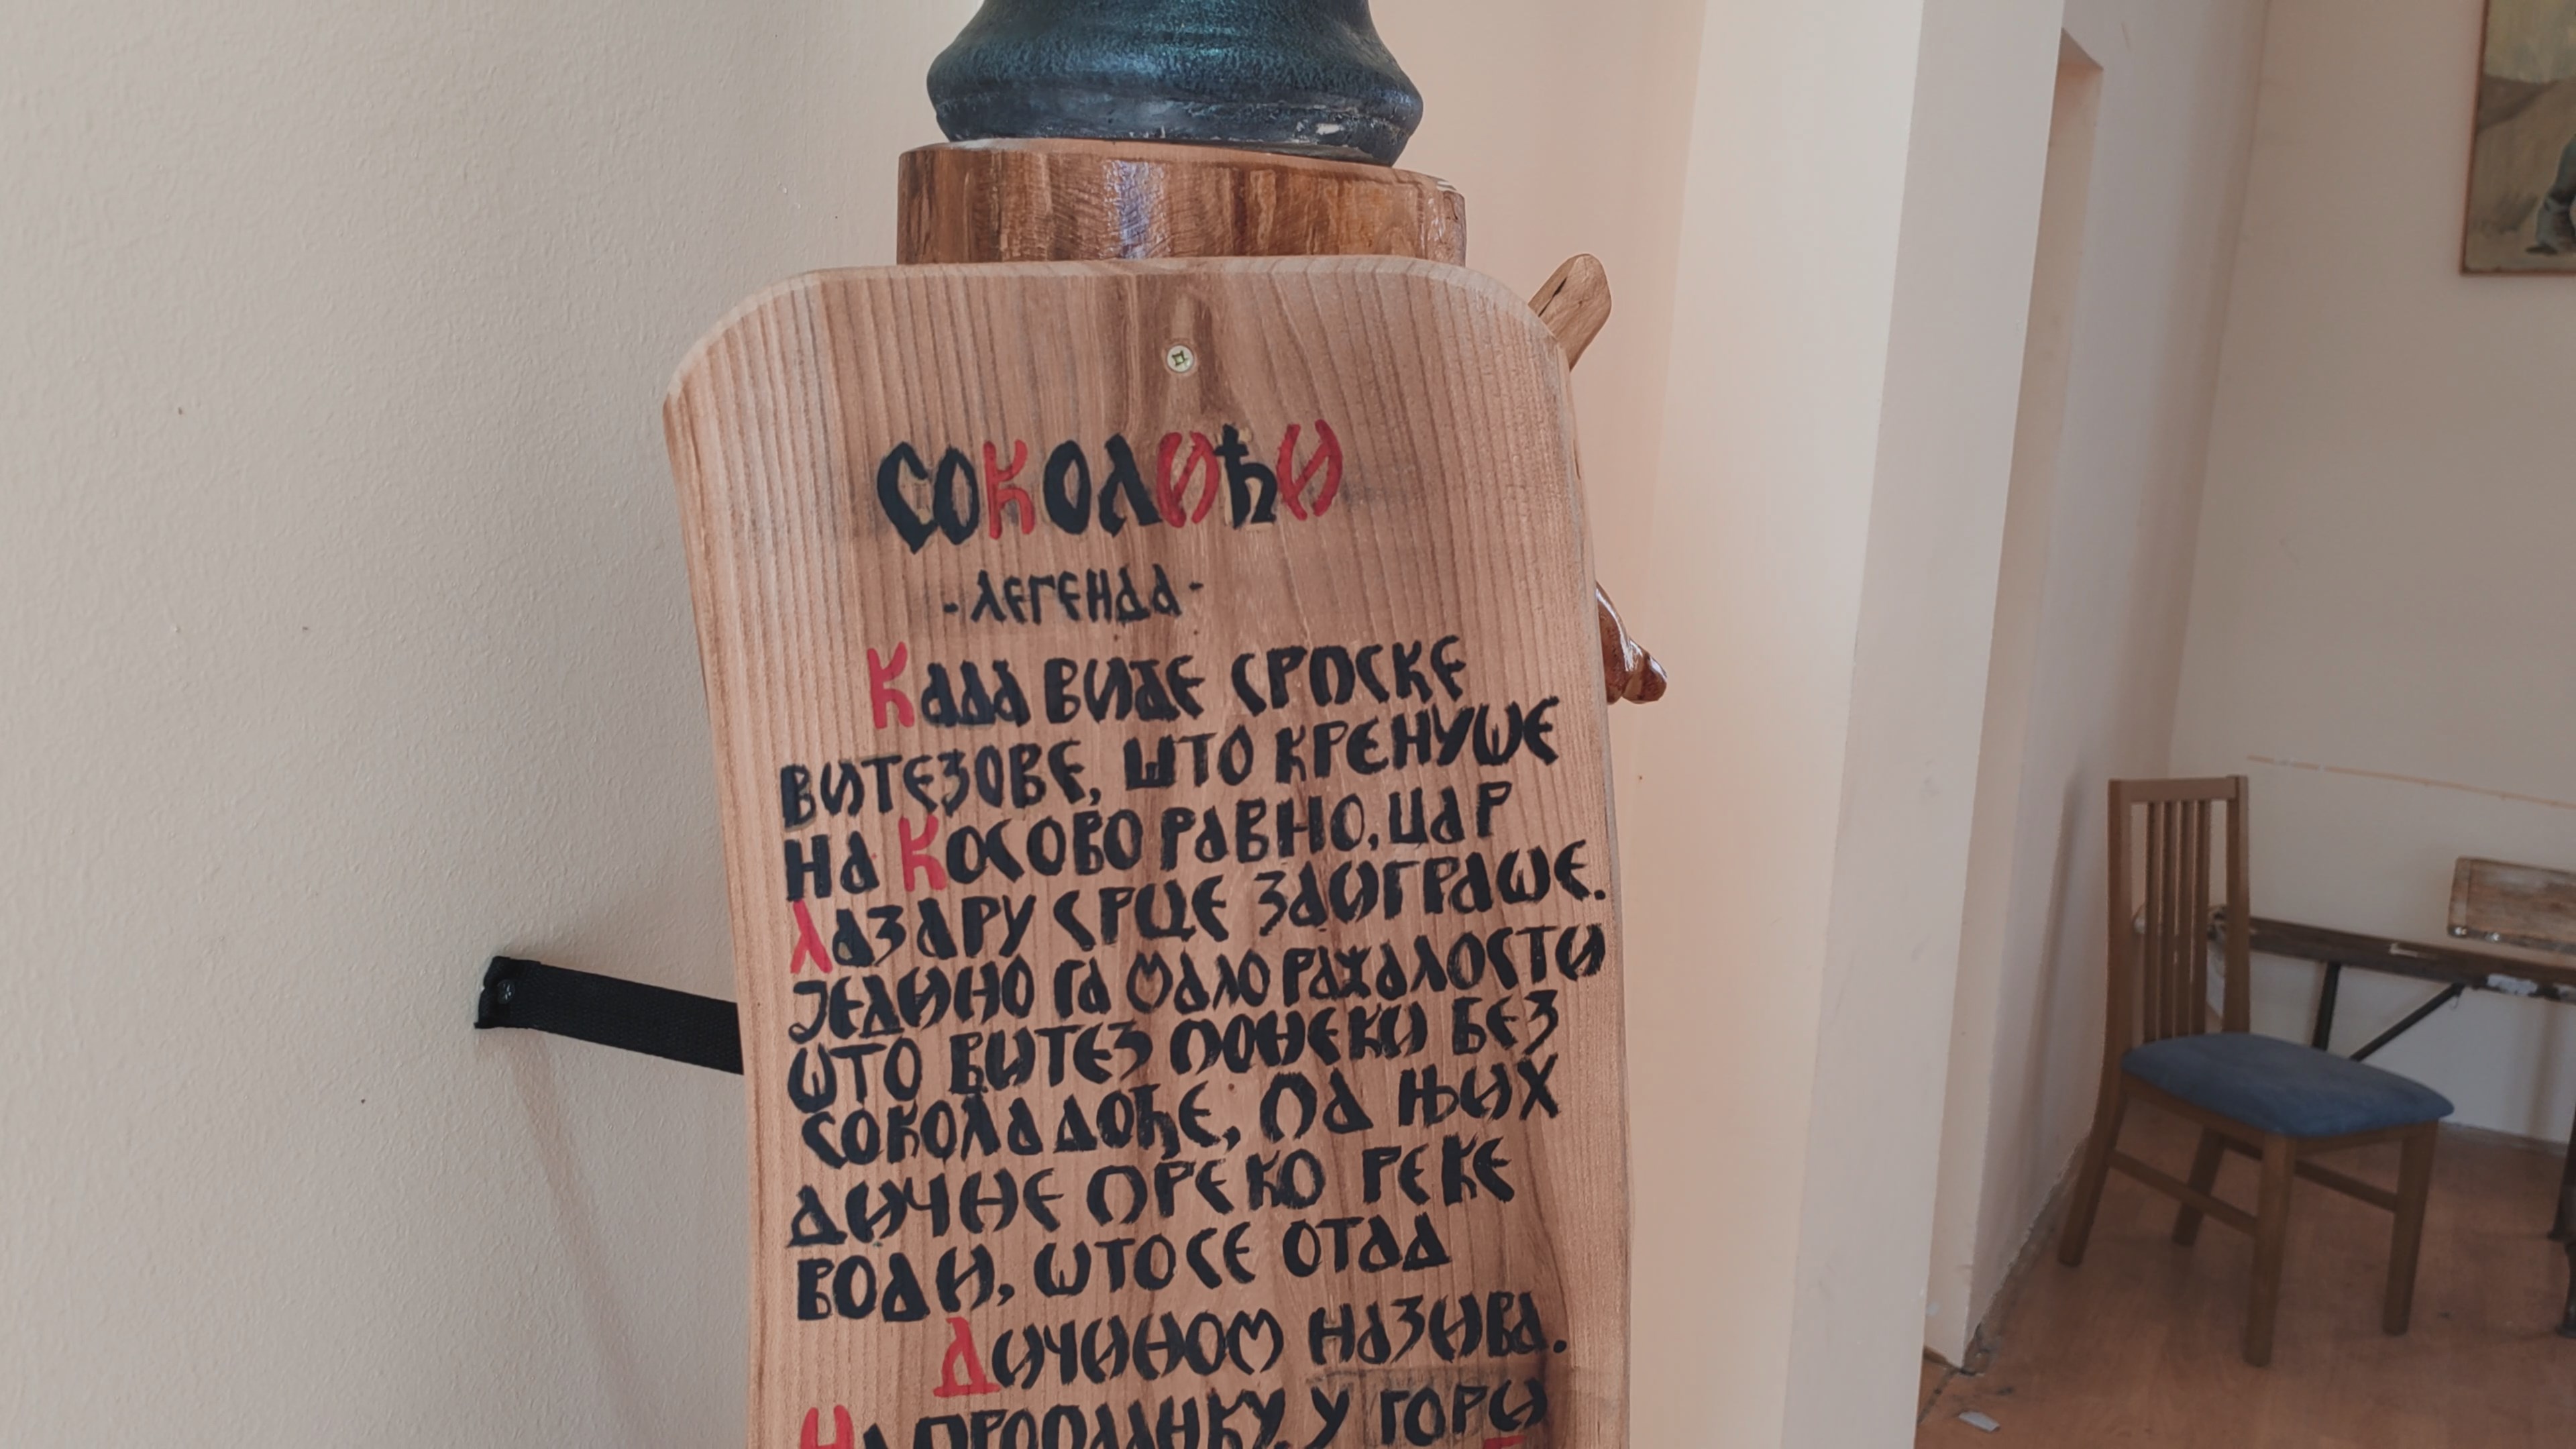 СОКОЛИЋИ
-ЛЕГЕНДА-
КАДА ВИДЕ СРПСКЕ
ВИТЕЗОВЕ, ШТО КРЕНУШЕ
НА КОСОВО РАВНО, ЦАР
ЛАЗАРУ СРЦЕ ЗАИГРАШЕ.
ЈЕДИНО ГА МАЛО РАЖАЛОСТИ
ШТО ВИТЕЗ ПОНЕКИ БЕЗ
СОКОЛА ДОЂЕ, ПА ЊИХ
ДИЧНЕ ПРЕКО РЕКЕ
ВОДИ, ШТО СЕ ОТАД
ДИЧИНОМ НАЗИВА.
НА ПРОПЛАНКУ, У ГОРИ